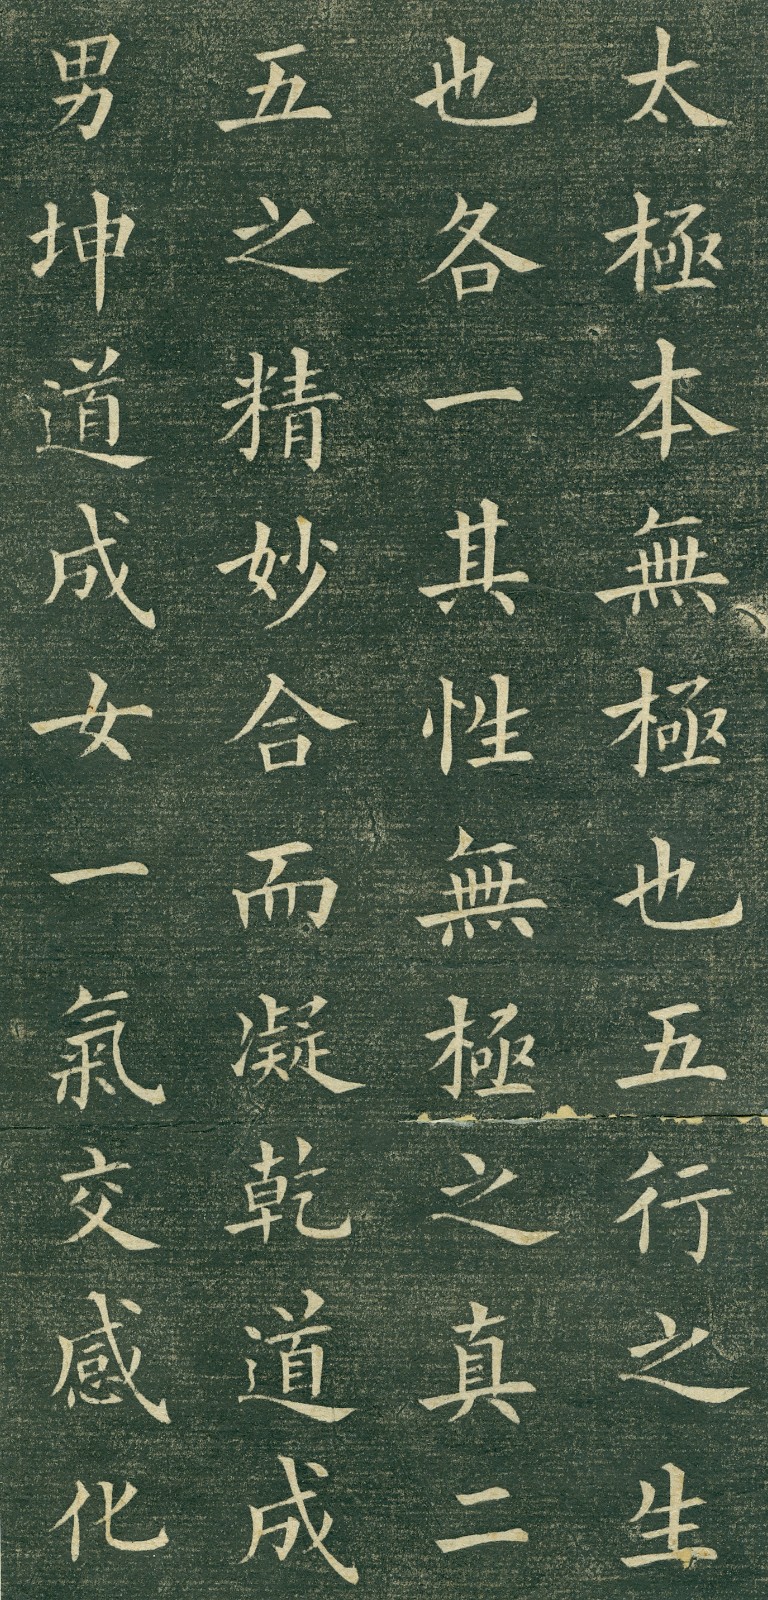 太極本無極也五行之生
也各一其性無極之真二
五之精妙合而凝乾道成
男坤道成女一氣交感化